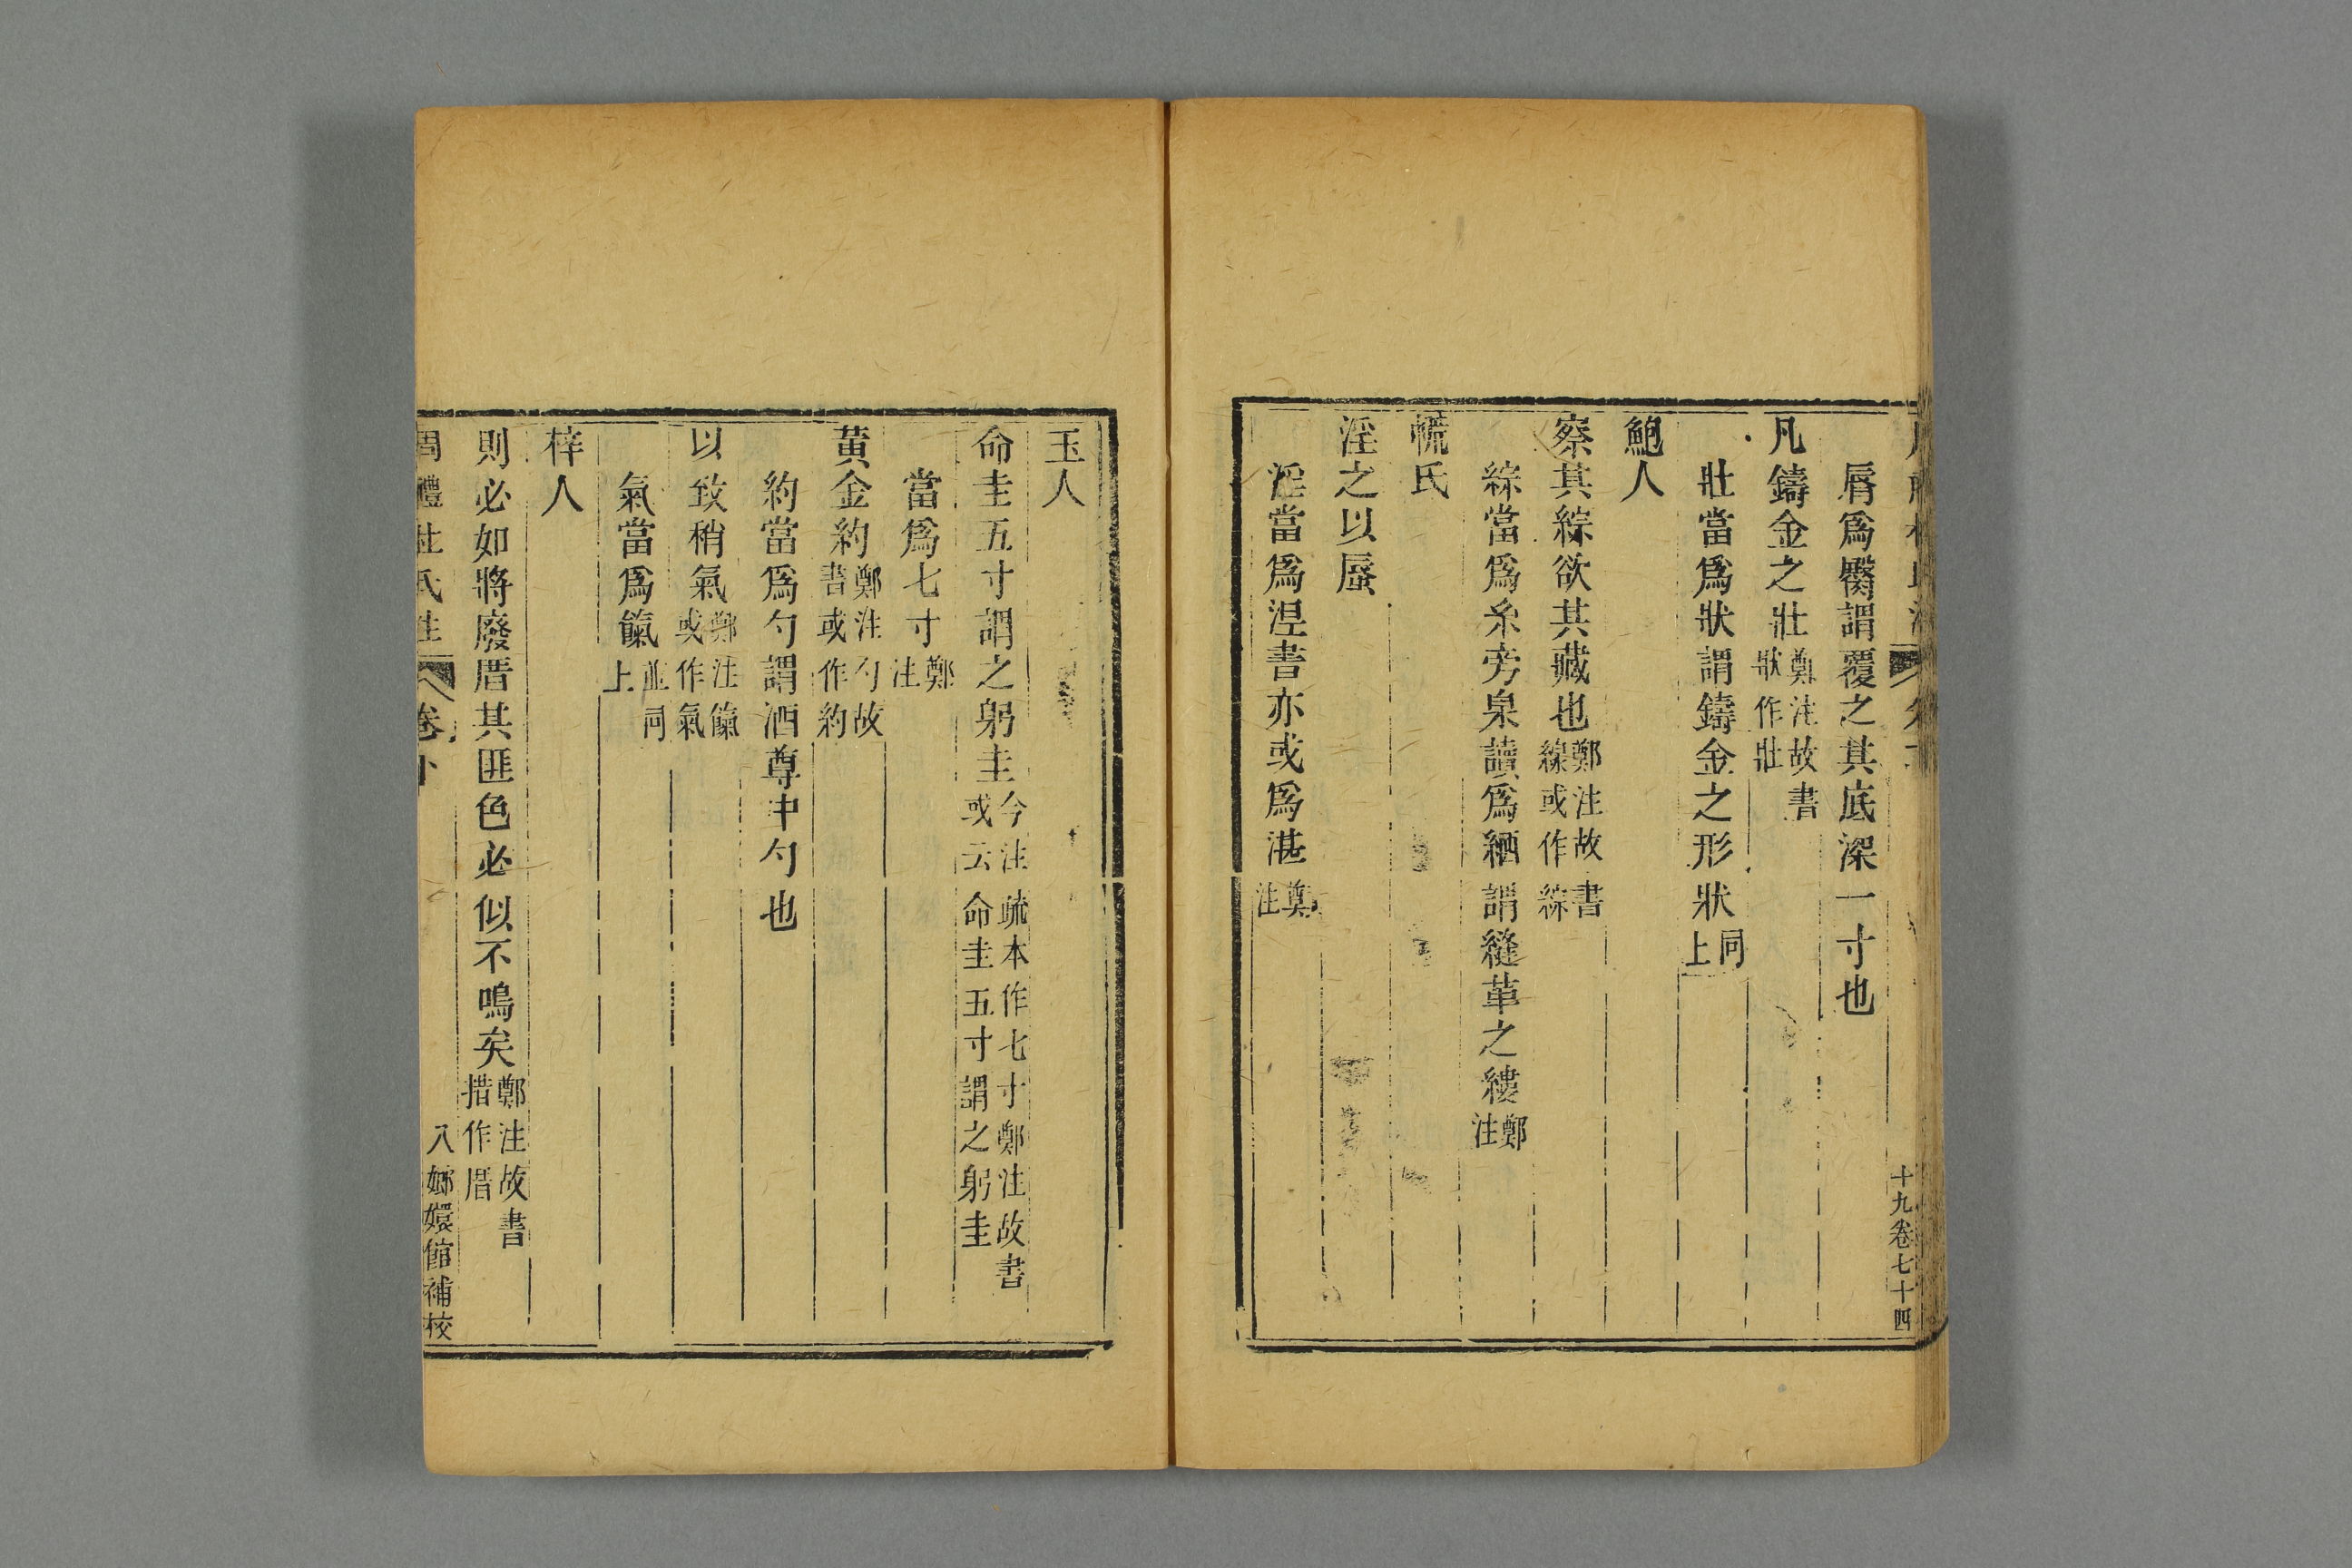 十九卷七十四
脣爲臋謂覆之其底深一寸也
凡鑄金之壯鄭注故書狀作壯
壯當爲狀謂鑄金之形狀同上
鮑人
察其綜欲其藏也鄭注故書線或作綜
綜當爲糸旁泉讀爲綫謂縫革之縷鄭注
㡛氏
淫之以蜃
淫當爲涅書亦或爲湛鄭注
玉人
命圭五寸謂之躬圭今注疏本作七寸鄭注故書或云命圭五寸謂之躬圭
當爲七寸鄭注
黃金約鄭注勺故書或作約
約當爲勺謂酒尊中勺也
以致稍氣鄭注餼或作氣
氣當爲餼並同上
梓人
則必如將廢厝其匪色必似不鳴矣鄭注故書措作厝
周禮杜氏注 卷下 八 嫏嬛館補校